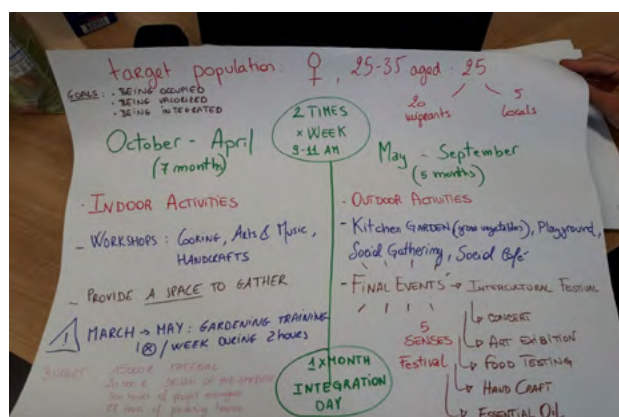 target population: ♀, 25-35 aged: 25
20 migrants
5 locals
GOALS: • BEING OCCUPIED
• BEING VALORIZED
• BEING INTEGRATED
2 TIMES
x WEEK
9-11 AM
October - April
(7 months)
May - September
(5 months)
• INDOOR ACTIVITIES
- WORKSHOPS: COOKING, ARTS & MUSIC,
HANDCRAFTS
- PROVIDE A SPACE TO GATHER
MARCH → MAY: GARDENING TRAINING
1 x / WEEK DURING 2 hours
BUDGET
MATERIAL
• OUTDOOR ACTIVITIES
- Kitchen GARDEN (grow vegetables), Playground,
Social Gathering, Social Café
- FINAL EVENTS → INTERCULTURAL FESTIVAL
5
SENSES
Festival
CONCERT
ART EXIBITION
FOOD TESTING
HAND CRAFT
ESSENTIAL OIL
1 x MONTH
INTEGRATION
DAY